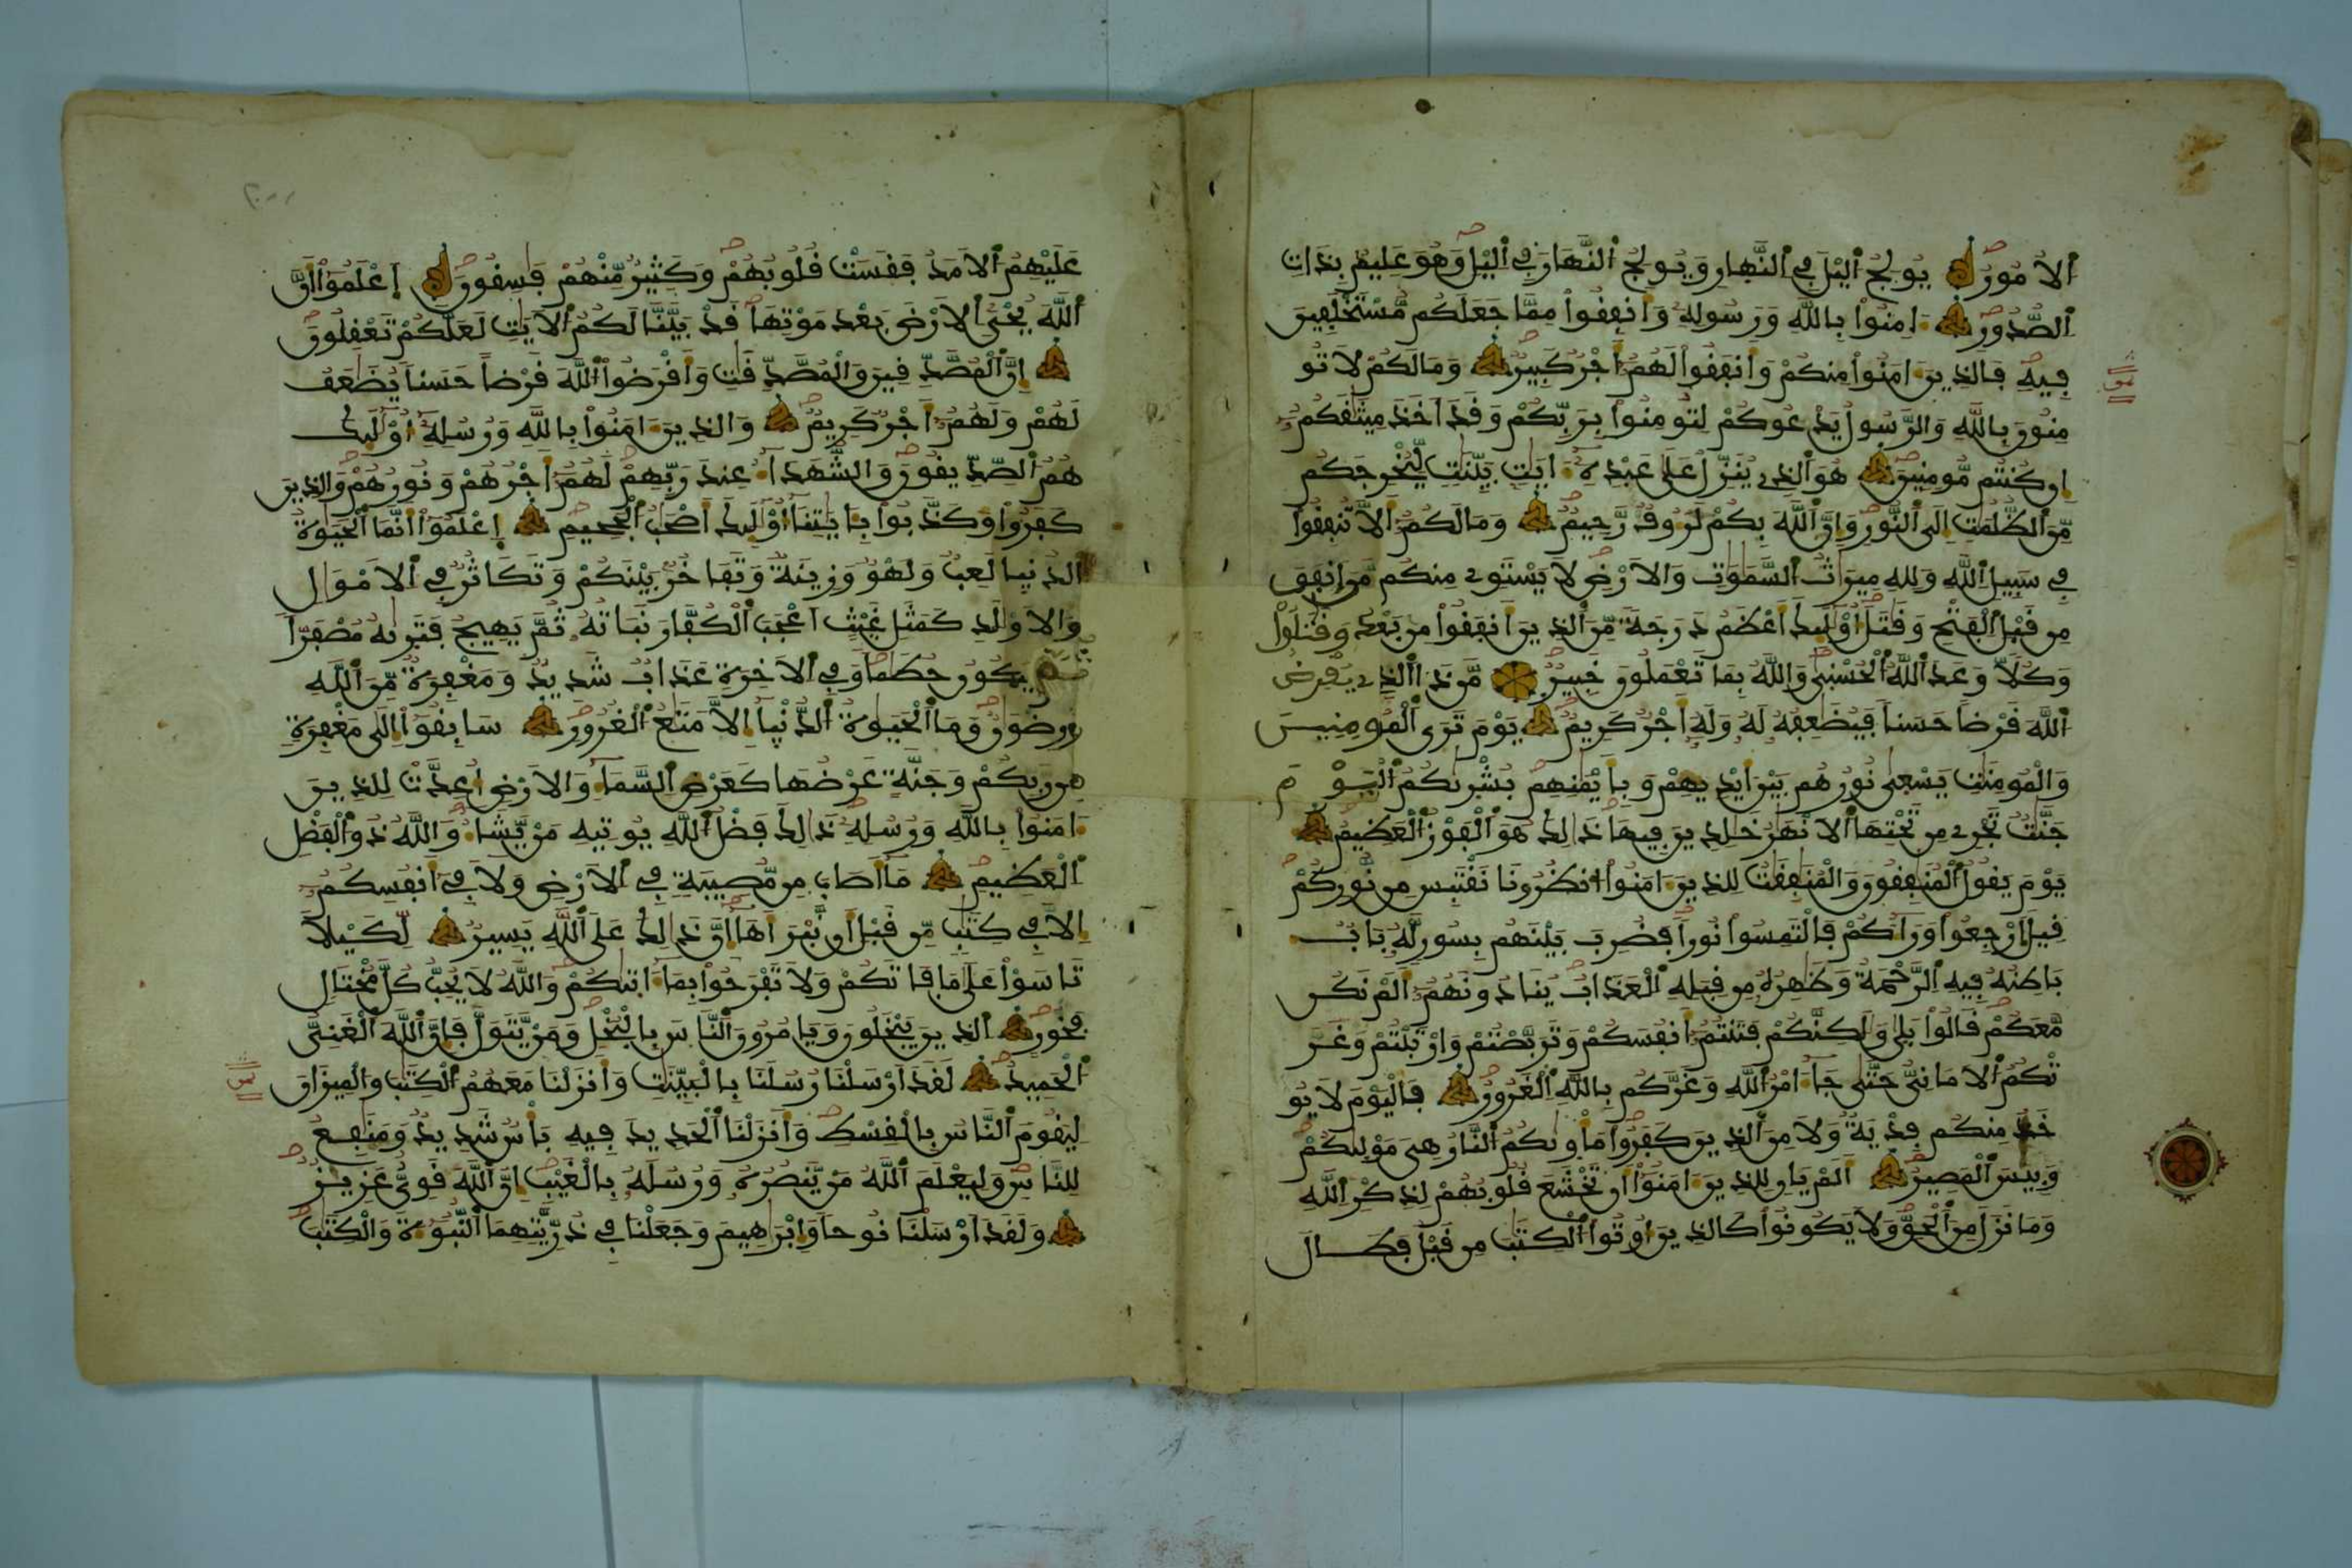 الامور يولج اليل في النهار ويولج النهار في اليل وهو عليم بذات
الصدور امنوا بالله ورسوله وانفقوا مما جعلكم مستخلفين
فيه فالذين امنوا منكم وانفقوا لهم اجر كبير وما لكم لا تو
منون بالله والرسول يدعوكم لتومنوا بربكم وقد اخذ ميثقكم
ان كنتم مومنين هو الذي ينزل على عبده ايت بينت ليخرجكم
من الظلمت الى النور وان الله بكم لروف رحيم وما لكم الا تنفقوا
في سبيل الله ولله ميراث السموت والارض لا يستوي منكم من انفق
من قبل الفتح وقتل اوليك اعظم درجة من الذين انفقوا من بعد وقتلوا
وكلا وعد الله الحسنى والله بما تعملون خبير من ذا الذي يقرض
الله قرضا حسنا فيضعفه له وله اجر كريم يوم ترى المومنين
والمومنت يسعى نورهم بين ايديهم وبايمنهم بشريكم اليوم
جنت تجري من تحتها الانهر خلدين فيها ذلك هو الفوز العظيم
يوم يقول المنفقون والمنفقت للذين امنوا انظرونا نقتبس من نوركم
قيل ارجعوا وراكم فالتمسوا نورا فضرب بينهم بسور له باب
باطنه فيه الرحمة وظهره من قبله العذاب ينادونهم الم نكن
معكم قالوا بلى ولكنكم فتنتم انفسكم وتربصتم وارتبتم وغر
تكم الاماني حتى جا امر الله وغركم بالله الغرور فاليوم لا يو
خذ منكم فدية ولا من الذين كفروا ماويكم النار هي موليكم
وبيس المصير الم يان للذين امنوا ان تخشع قلوبهم لذكر الله
وما نزل من الحق ولا يكونوا كالذين اوتوا الكتب من قبل فطال
عليهم الامد فقست قلوبهم وكثير منهم فسقون اعلموا ان
الله يحي الارض بعد موتها قد بينا لكم الايت لعلكم تعقلون
ان المصدقين والمصدقت واقرضوا الله قرضا حسنا يضعف
لهم ولهم اجر كريم والذين امنوا بالله ورسله اوليك
هم الصديقون والشهدا عند ربهم لهم اجرهم ونورهم والذين
كفروا وكذبوا بايتنا اوليك اصحب الجحيم اعلموا انما الحيوة
الدنيا لعب ولهو وزينة وتفاخر بينكم وتكاثر في الامول
والاولد كمثل غيث اعجب الكفار نباته ثم يهيج فتريه مصفرا
ثم يكون حطما وفي الاخرة عذاب شديد ومغفرة من الله
ورضون وما الحيوة الدنيا الا متع الغرور سابقوا الى مغفرة
من ربكم وجنة عرضها كعرض السما والارض اعدت للذين
امنوا بالله ورسله ذلك فضل الله يوتيه من يشا والله ذو الفضل
العظيم ما اصاب من مصيبة في الارض ولا في انفسكم
الا في كتب من قبل ان نبراها ان ذلك على الله يسير لكيلا
تاسوا على ما فاتكم ولا تفرحوا بما اتيكم والله لا يحب كل مختال
فخور الذين يبخلون ويامرون الناس بالبخل ومن يتول فان الله الغني
الحميد لقد ارسلنا رسلنا بالبينت وانزلنا معهم الكتب والميزان
ليقوم الناس بالقسط وانزلنا الحديد فيه باس شديد ومنفع
للناس وليعلم الله من ينصره ورسله بالغيب ان الله قوي عزيز
ولقد ارسلنا نوحا وابرهيم وجعلنا في ذريتهما النبوة والكتب